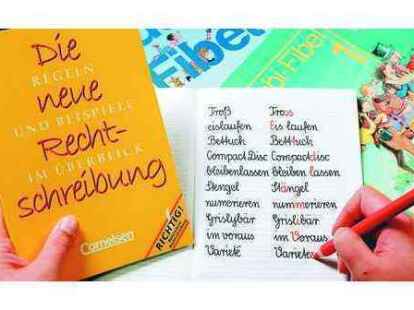 Die
REGELN
neue
UND BEISPIELE
Recht-
IM ÜBERBLICK
schreibung
RICHTIG!
Cornelsen
Fibel
bi Fibel 1
Troß Tross
eislaufen Eis laufen
Bettuch Betttuch
Compact Disc Compactdisc
bleibenlassen bleiben lassen
Stengel Stängel
numerieren nummerieren
Grislybär Grislibär
im voraus im Voraus
Varieté Varietee